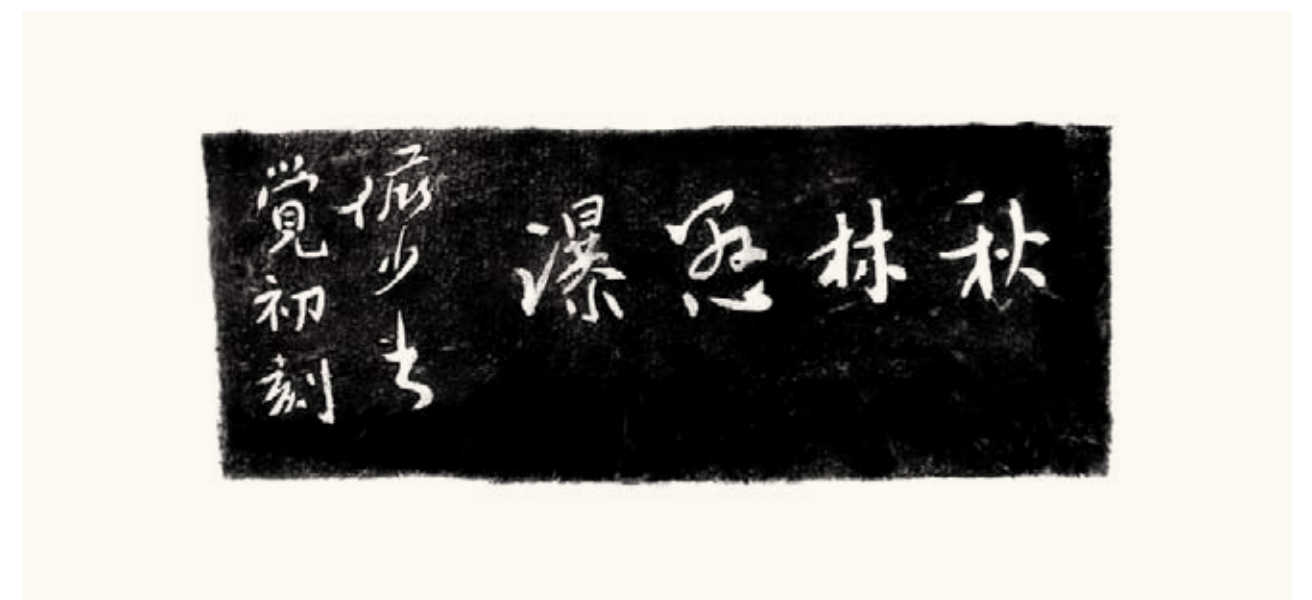 秋林瀑
少書
覚初刻